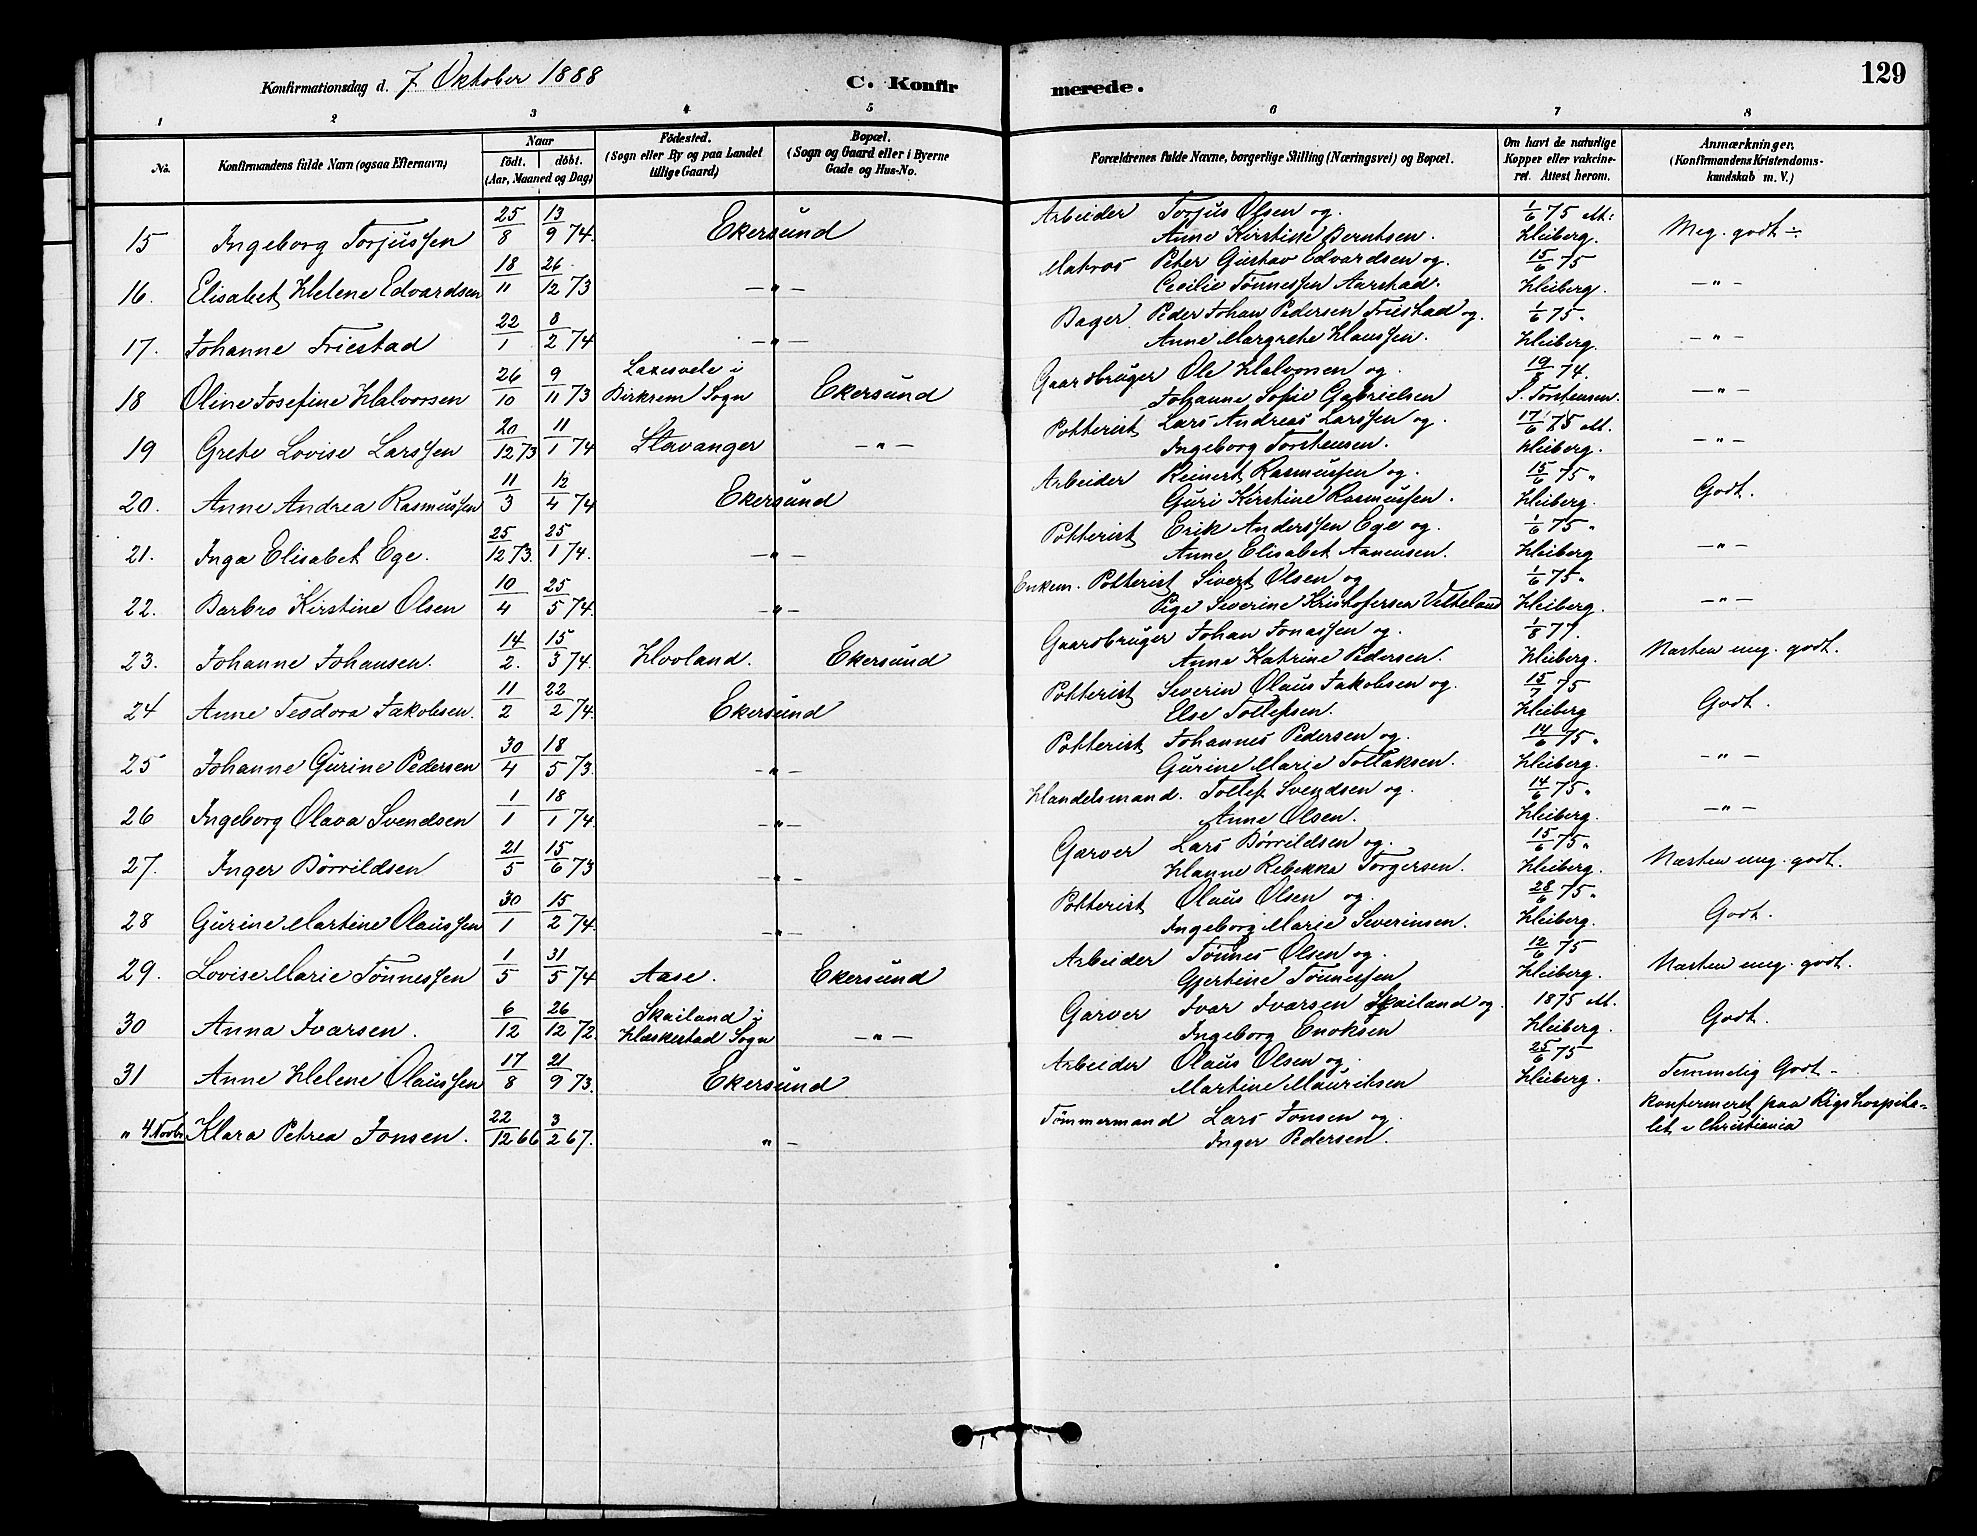 Konfirmationsdag d. 7 Oktober 1888 C. Konfirmerede. 129
1 2 3 4 5 6 7 8
No. Konfirmandens fulde Navn (ogsaa Efternavn) Naar födt. döbt. (Aar, Maaned og Dag) Födested. (Sogn eller By og paa Landet tillige Gaard) Bopæl. (Sogn og Gaard eller i Byerne Gade og Hus-No. Forældrenes fulde Navne, borgerlige Stilling (Næringsvei) og Bopæl. Om havt de naturlige Kopper eller vakcineret. Attest herom. Anmærkninger. (Konfirmandens Kristendomskundskab m. V.)
15 Ingeborg Torjussen 25/8 13/9 74. Ekersund Arbeider Torjus Olsen og Anne Kirstine Berntsen. 1/6 75 M: Heiberg. Meg. godt ÷
16. Elisabet Helene Edvardsen 18/11 26/12 73 -"- Matros Peter Gustav Edvardsen og Cecilie Tønnessen Aarstad. 15/6 75 Heiberg. -"-
17. Johanne Friestad 22/1 8/2 74 -"- Bager Peder Johan Pedersen Friestad og Anne Margrethe Klaussen. 1/6 75" Heiberg. -"-
18 Oline Josefine Halvorsen 26/10 9/11 73 Laxesvele i Birkrem Sogn Ekersund Gaardbruger Ole Halvorsen og Johanne Sofie Gabrielsen 74. S. Torstensen. -"-
19 Grete Lovise Larssen 20/12 73 11/1 74 Stavanger -"- Potterist Lars Andreas Larssen og Ingeborg Torstensen. 17/6 75 M. Heiberg. -"-
20. Anne Andrea Rasmussen 11/3 12/4 74 Ekersund Arbeider Reinert Rasmussen og Guri Kirstine Rasmussen. 15/6 75" Heiberg. Godt.
21. Inga Elisabet Ege. 25/12 73. 25/1 74. -"- Potterist Erik Anderssen Ege og Anne Elisabet Aanensen. 1/6 75" Heiberg -"-
22. Barbro Kirstine Olsen 10/4 25/5 74. -"- Enkem. Potterist Sivert Olsen og Pige Severine Kristofersen Vetteland 1/6 75" Heiberg. -"-
23. Johanne Johansen. 14/2. 15/3 74. Hovland. Ekersund Gaardbruger Johan Jonassen og Anne Katrine Pedersen. 1/8 77. Heiberg. Næsten meg. godt.
24 Anne Teodora Jakobsen. 11/2 22/2 74. Ekersund Potterist Severin Olaus Jakobsen og Else Tollefsen. 15/7 75 Heiberg Godt.
25 Johanne Gurine Pedersen 30/4 18/5 73. -"- Potterist Johannes Pedersen og Gurine Marie Tollaksen. 14/6 75" Heiberg. -"-
26 Ingeborg Olava Svendsen 1/1 18/1 74. -"- Handelsmand. Tollef Svendsen og Anne Olsen. 14/6 75" Heiberg. -"-
27. Inger Børrildsen 21/5 15/6 73 -"- Garver Lars Børrildsen og Hanne Rebekka Torgersen. 15/6 75" Heiberg. Næsten meg. godt.
28 Gurine Martine Olaussen 30/1 15/2 74. -"- Potterist Olaus Olsen og Ingeborg Marie Severinsen. 28/6 75" Heiberg. Godt.
29. Lovise Marie Tønnessen 1/5 31/5 74 Aase. Ekersund Arbeider Tønnes Olsen og Gjertine Tønnessen 12/6 75 Heiberg. Næsten meg. godt.
30 Anna Ivarsen. 6/12 26/12 72. Skailand i Heskestad Sogn -"- Garver Ivar Ivarsen Skailand og Ingeborg Enoksen 1875 M. Heiberg. Godt.
31 Anne Helene Olaussen 17/8 21/9 73. Ekersund Arbeider Olaus Olsen og Martine Mauritsen 25/6 75 Heiberg. Temmelig Godt -
" 4 Novbr Klara Petrea Jonsen. 22/12 66 3/2 67. " - Tømmermand Lars Jonsen og Inger Pedersen. Konfirmeret paa Rigshospitalet i Christiania